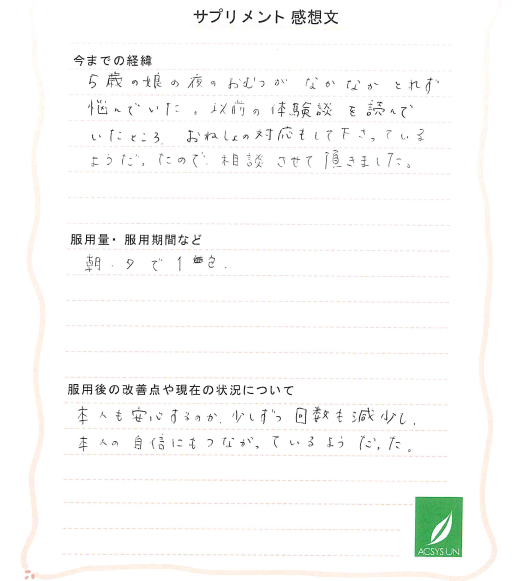 サプリメント 感想文
今までの経緯
5歳の娘の夜のおむつが なかなか とれず
悩んでいた。以前の体験談を読んで
いたところ、おねしょの対応もして下さっている
ようだったので、相談させて頂きました。
服用量・服用期間など
朝・夕で1包.
服用後の改善点や現在の状況について
本人も安心するのか、少しずつ回数も減少し、
本人の自信にもつながっているようだった。
ACSYSUN